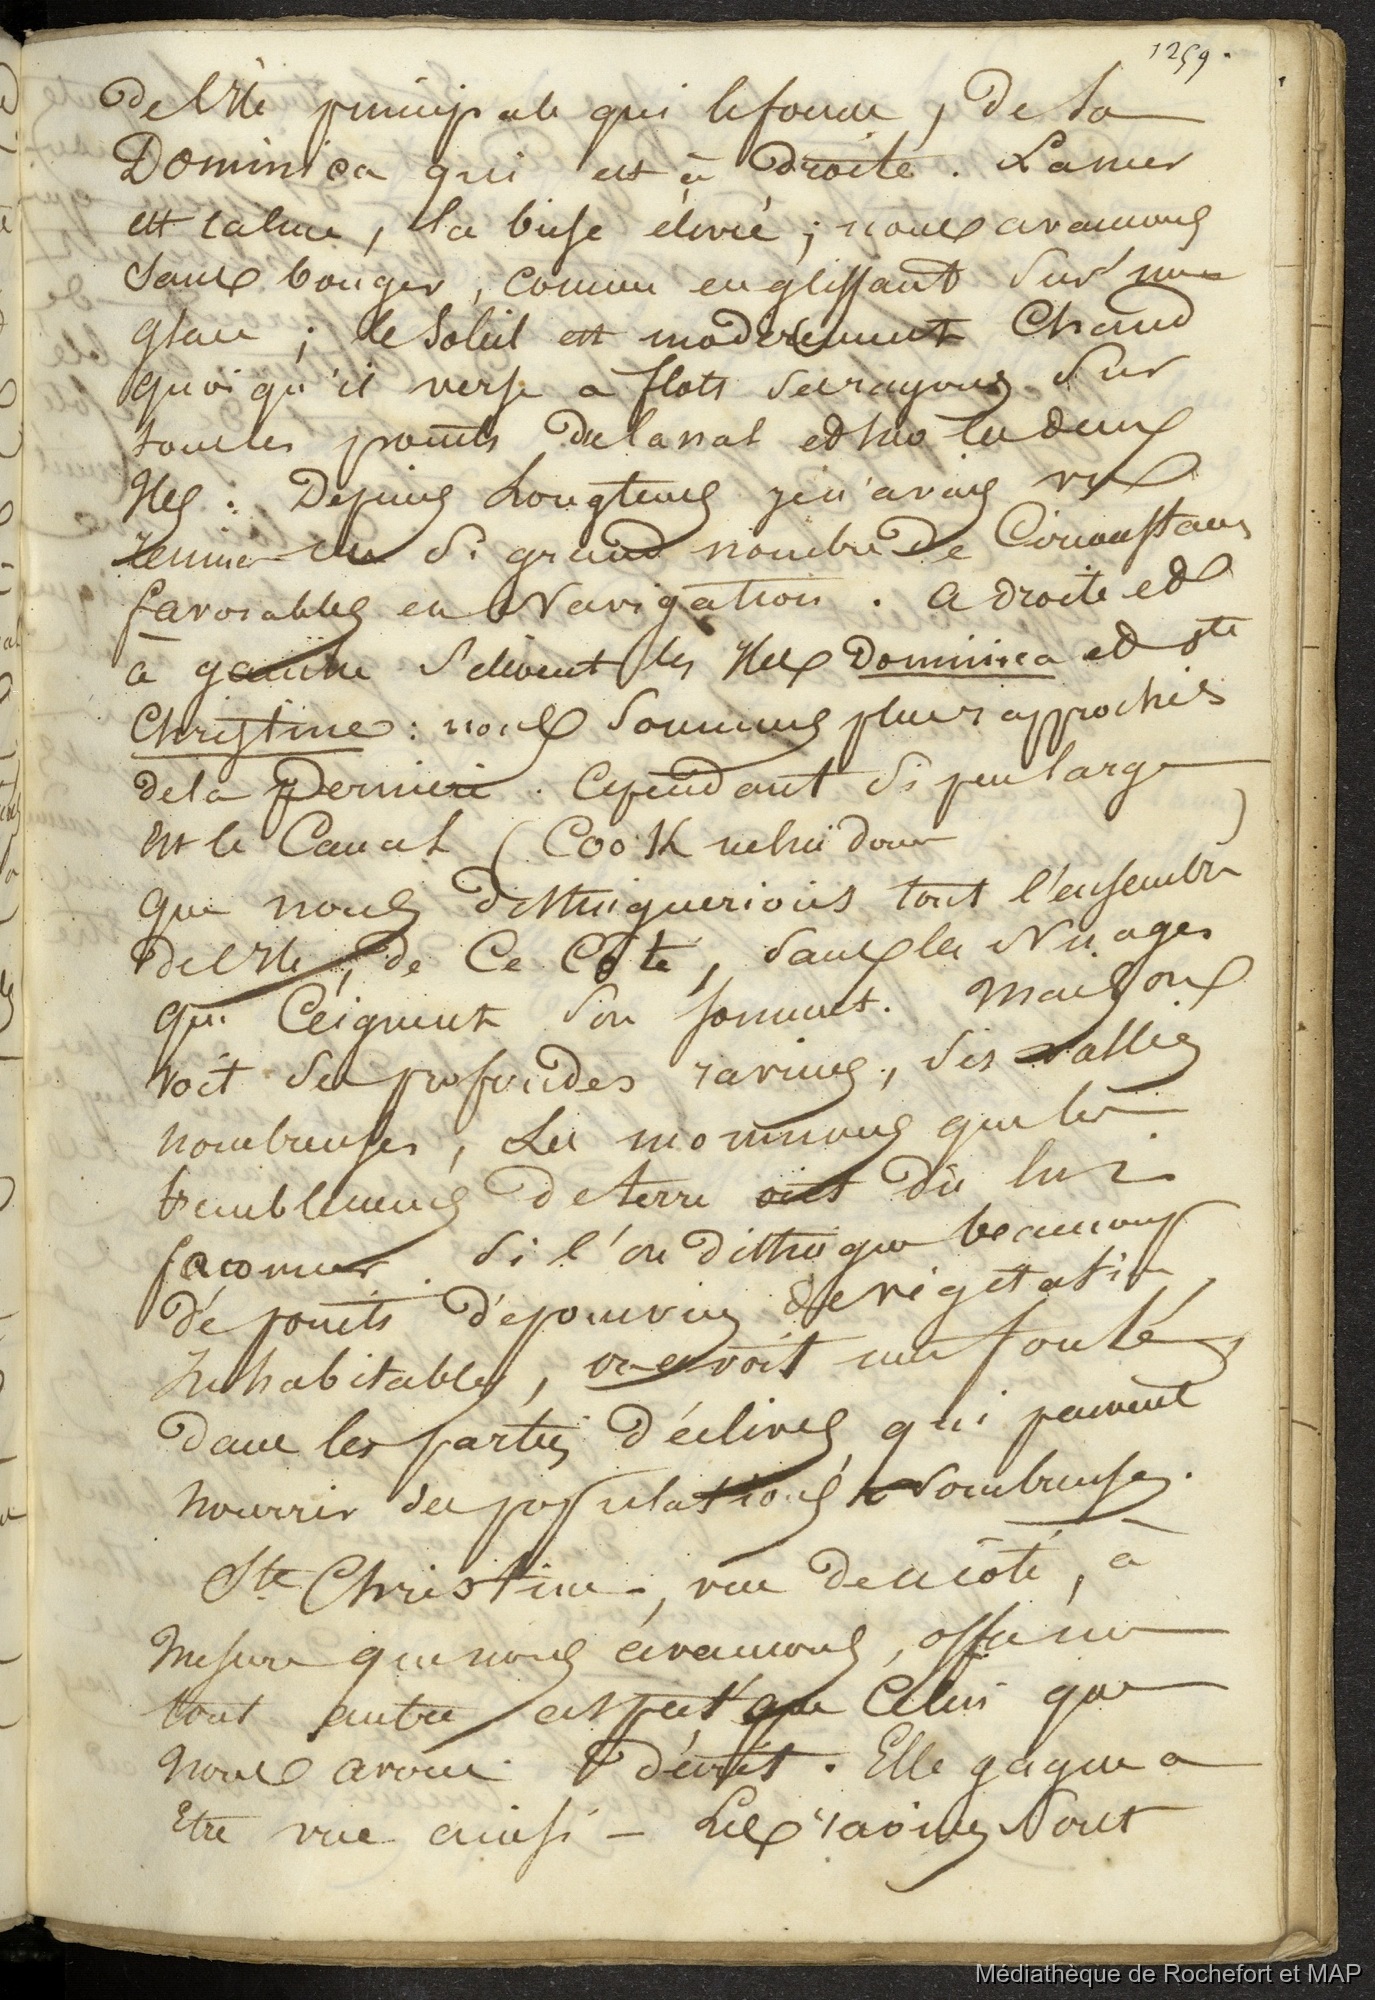 1259.
de l'Ile principale qui le forme, de la
Dominica qui est à droite. La mer
est calme, la brise élevée; nous avancons
sans bouger, comme en glissant sur une
glace; le soleil est moderement chaud
quoiqu'il verse a flots ses rayons sur
tous les points du lanal et sur les deux
Iles: Depuis Longtems je n'avais vu
reunies un si grand nombre de Circonstances
favorables en Navigation. A droite et
à gauche s'elevent les Iles Dominica et Ste
Christine: nous sommes plus rapprochés
de la Derniere. Cependant si peu large
est le Canal (Cook ne lui donne )
que nous distinguerions tout l'ensemble
de l'Ile, de Ce Côté, sans les Nuages
qui Ceignent son sommet. Mais on
voit de profondes ravines, des vallées
nombreuses, des mornes que les
tremblemens de terre ont dû lui
faconner. Si l'on distingue beaucoup
de points dépourvus de végétation,
inhabitables, on en voit une foule,
dans les parties déclives, qui peuvent
nourrir des populations Nombreuses.
Ste Christine, vue de ce côté, à
Mesure que nous avancons, offre un
tout autre aspect que Celui que
nous avons décrit. Elle gagne a
Etre vue ainsi – Les ravines sont
Médiathèque de Rochefort et MAP